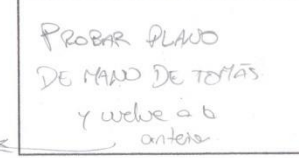 PROBAR PLANO
DE MANO DE TOMÁS
y vuelve a lo
anterior